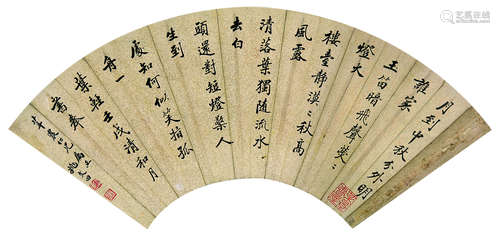 月到中秋分外明
誰家
玉笛暗飛聲熒〻
燈火
樓臺靜漠〻秋高
風露
清落葉獨隨流水
去白
頭還對短燈檠人
生到
處知何似笑指孤
舟一
葉輕壬戌清和月
書奉